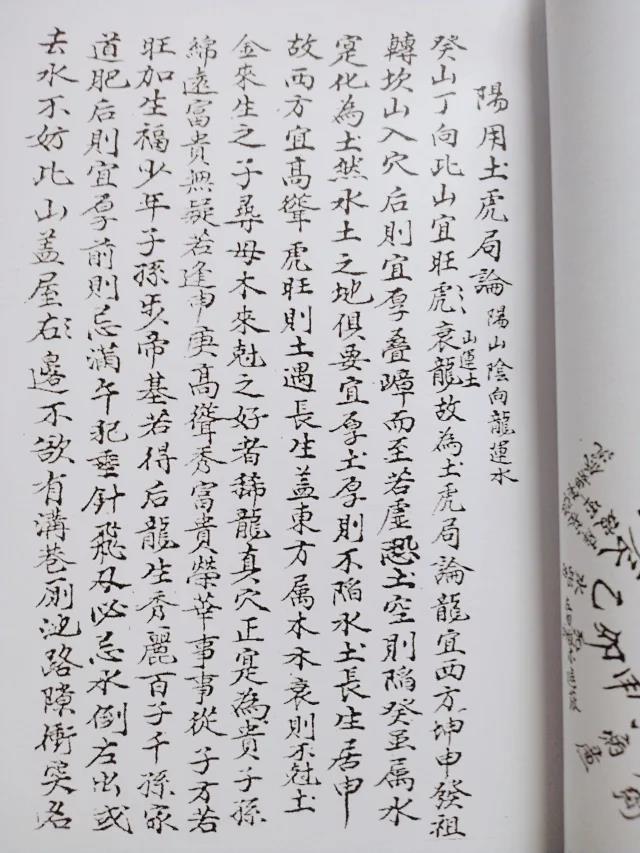 陽用土虎局論 陽山陰向龍運水 山運土
癸山丁向此山宜旺虎衰龍故為土虎局論龍宜西方坤申發祖
轉坎山入穴后則宜厚疊嶂而至若虛恐土空則陷癸虽属水
寔化為土然水土之地俱要宜厚土厚則不陷水土長生居申
故西方宜高聳虎旺則土遇長生盖東方属木木衰則不尅土
金來生之子尋母木來尅之好者稀龍真穴正寔為貴子孫
綿遠富貴無疑若逢申庚高聳秀富貴榮華事事從子方若
旺加生福少年子孫帝基若得后龍生秀麗百子千孫家
道肥后則宜厚前則忌滿午犯垂針飛刃必忌水倒左出或
去水不妨此山盖屋右邉不欲有溝巷厠池路隙衝突名
乙卯